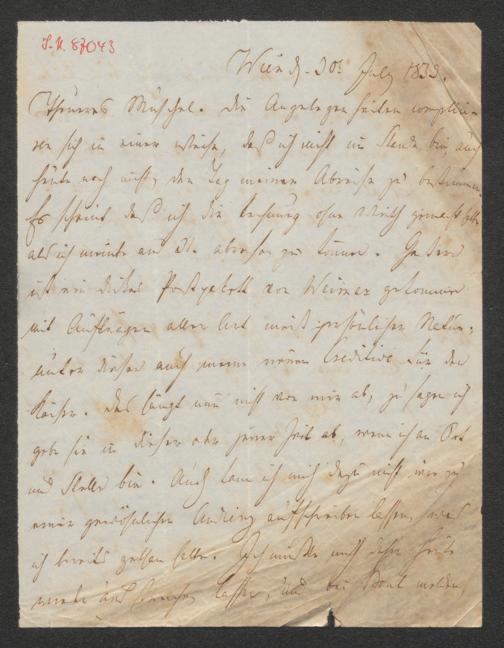 I.N. 87043
Wien d. 30t July 1833.
Theures Muschel. Die Angelegenheiten compliciren
sich in einer Weise, daß ich nicht im Stande bin, auch
heute noch nicht, den Tag meiner Abreise zu bestimmen.
Es scheint daß ich die Rechnung ohne Wirth gemacht habe
als ich meinte am abreisen zu können. Gestern
ist ein dickes Postpakett von Weimar gekommen
mit Aufträgen aller Art meist persönlicher Natur,
unter diesen auch meine neuen Creditive für den
Kaiser. Das hängt nun nicht von mir ab, zu sagen ich
gebe sie in dieser oder jener Zeit ab, wenn ich an Ort
und Stelle bin. Auch kann ich mich dazu nicht wie zu
einer gewöhnlichen Audienz aufschreiben lassen, was
ich bereits gethan hatte. Ich mußte mich daher heute
wieder lassen, und bei melden